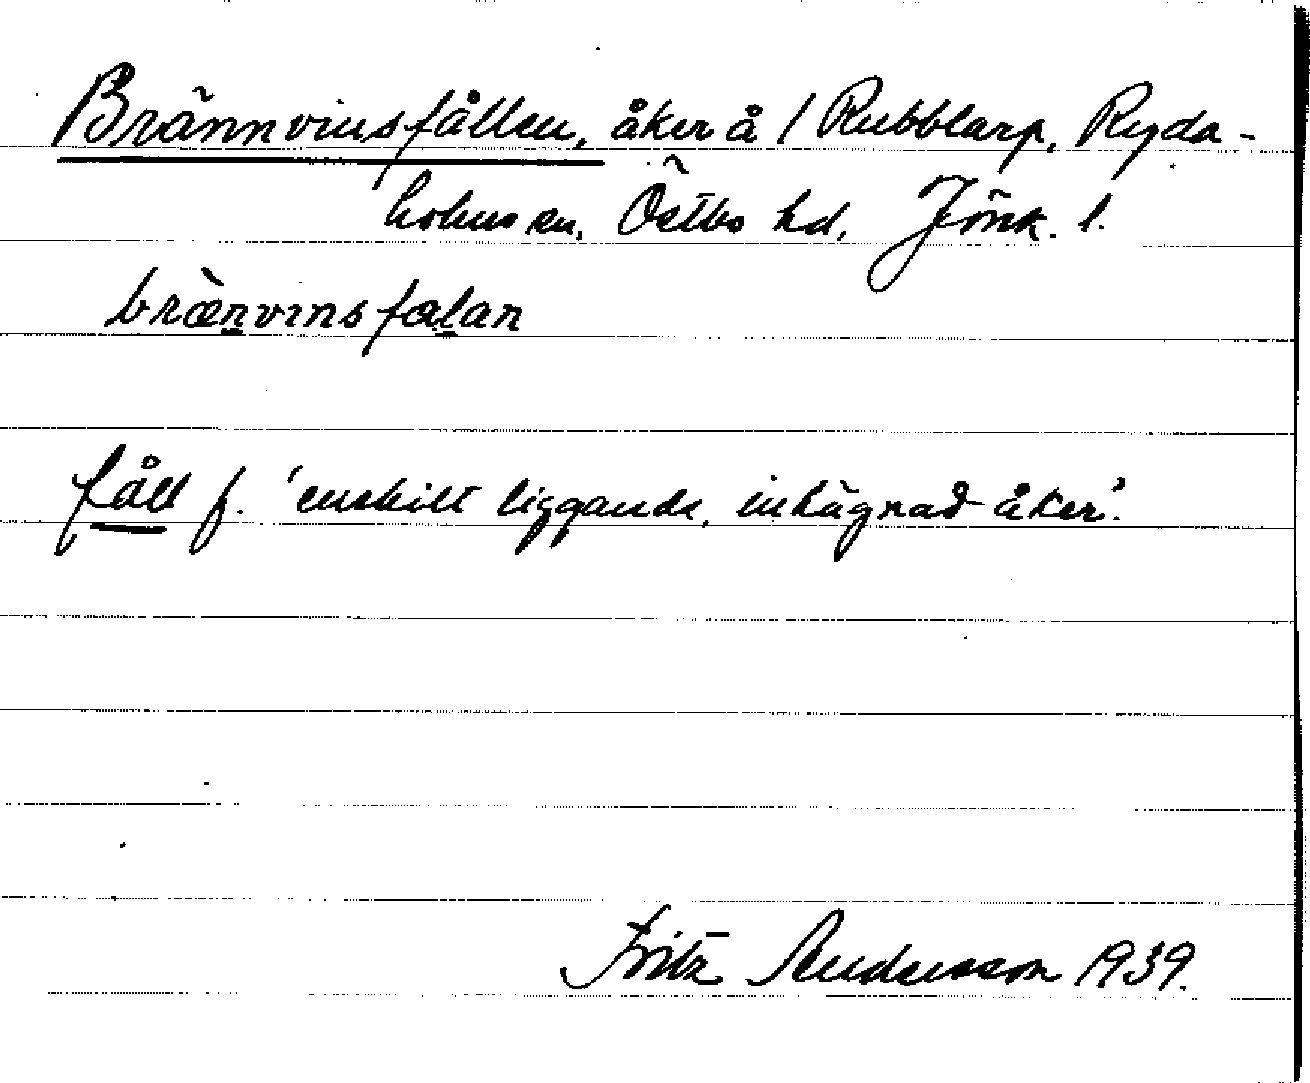 Brännvinsfållen, åker å / Rubblarp, Ryda-
holms sn, Östbo hd, Jönk. l.
bræ̀n̲vinsfæl̲an
fåll f. 'enskilt liggande, inhägnad åker'.
Fritz Andersson 1939.